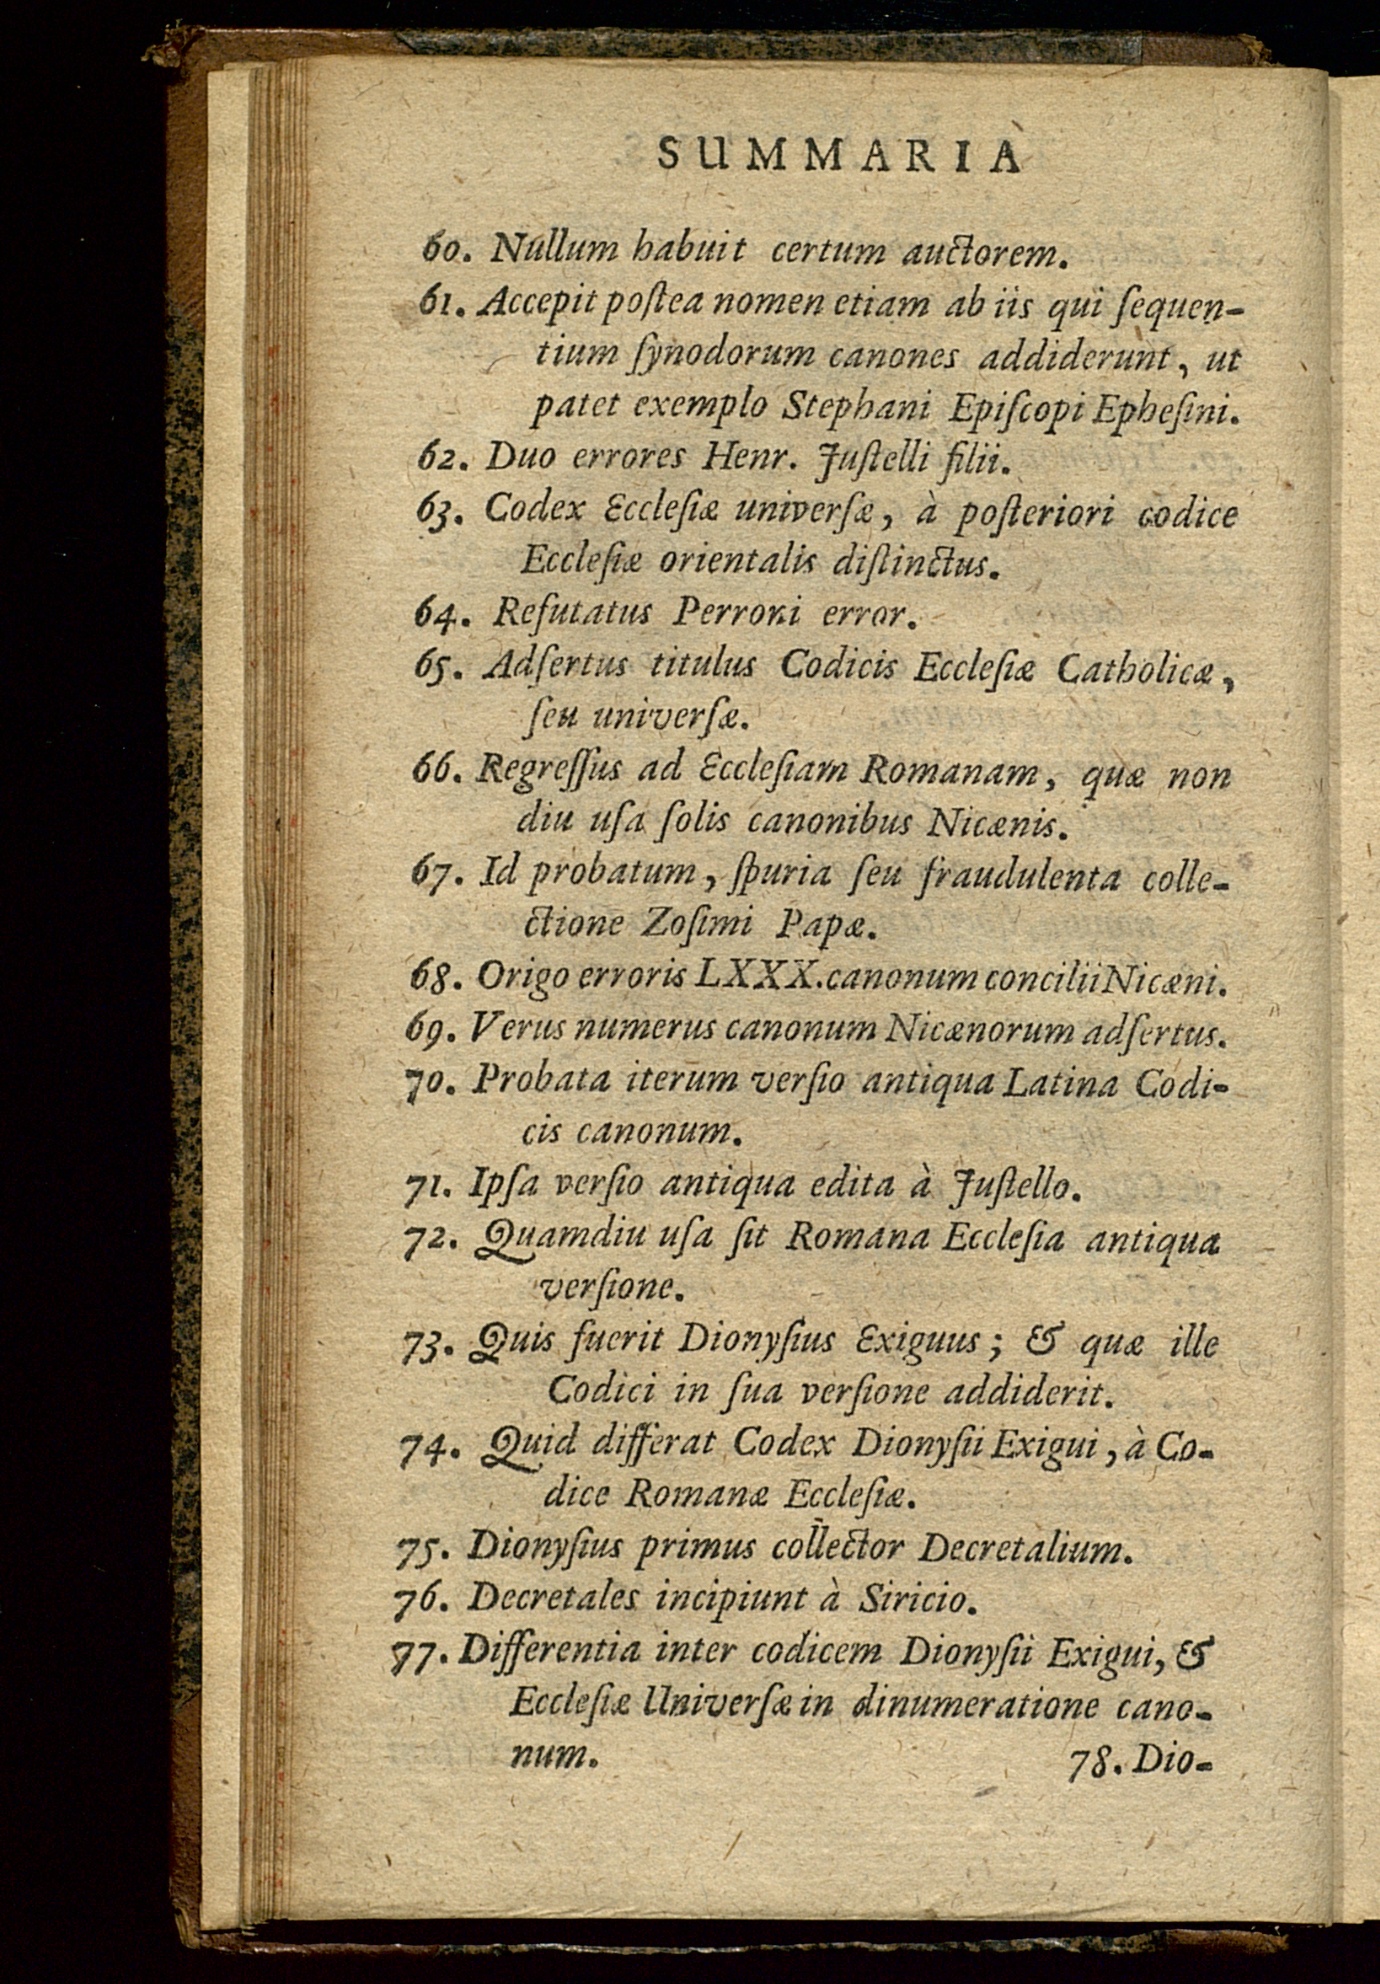 SUMMARIA
60. Nullum habuit certum auctorem.
61. Accepit poſtea nomen etiam ab iis qui ſequen-
tium ſynodorum canones addiderunt, ut
patet exemplo Stephani Epiſcopi Epheſini.
62. Duo errores Henr. Juſtelli filii.
63. Codex Eccleſiæ univerſæ, à poſteriori codice
Eccleſiæ orientalis diſtinctus.
64. Refutatus Perroni error.
65. Adſertus titulus Codicis Eccleſiæ Catholicæ,
ſeu univerſæ.
66. Regreſſus ad Eccleſiam Romanam, quæ non
diu uſa ſolis canonibus Nicænis.
67. Id probatum, ſpuria ſeu fraudulenta colle-
ctione Zoſimi Papæ.
68. Origo erroris LXXX. canonum concilii Nicæni.
69. Verus numerus canonum Nicænorum adſertus.
70. Probata iterum verſio antiqua Latina Codi-
cis canonum.
71. Ipſa verſio antiqua edita à Juſtello.
72. Quamdiu uſa ſit Romana Eccleſia antiqua
verſione.
73. Quis fuerit Dionyſius Exiguus; & quæ ille
Codici in ſua verſione addiderit.
74. Quid differat Codex Dionyſii Exigui, à Co-
dice Romanæ Eccleſiæ.
75. Dionyſius primus collector Decretalium.
76. Decretales incipiunt à Siricio.
77. Differentia inter codicem Dionyſii Exigui, &
Eccleſiæ Univerſæ in dinumeratione cano-
num. 78. Dio-